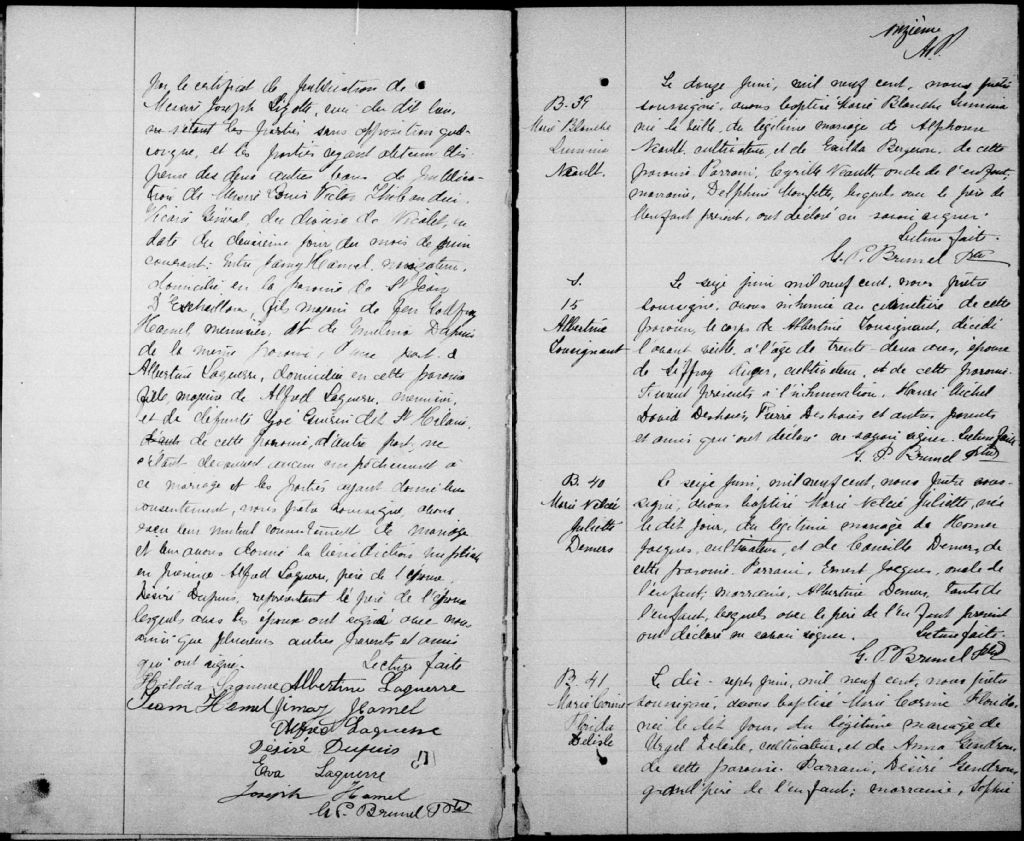 par le certificat de publication de
Messire Joseph Sizotte, curé du dit lieu,
les parties sans opposition quel-
conque, et les parties ayant obtenu dis
pense des deux autres bans de publica-
tion de Messire Louis Victor Thibaudier
Vicaire Général, du diocèse de Nicolet, en
date du deuxième jour du mois de juin
courant: Entre Jimmy Hamel, navigateur,
domicilié en la paroisse de St Jean
D'Eschaillons, fils majeur de feu Godfroy
Hamel menuisier, et de Emelina Dupuis
de la même paroisse, d'une part, &
Albertine Laguerre, domiciliée en cette paroisse
fille majeure de Alfred Laguerre, menuisier,
et de défunte Zoé dit St Hilaire,
de cette paroisse, d'autre part, ne
s'étant découvert aucun empêchement à
ce mariage et les parties ayant donné leur
consentement, nous prêtre soussigné, avons
reçu leur mutuel consentement de mariage
et leur avons donné la bénédiction nuptiale
en présence Alfred Laguerre, père de l'épouse,
Désiré Dupuis, représentant le père de l'époux
lesquels avec les époux ont signé avec nous
ainsi que plusieurs autres parents et amis
qui ont signé. Lecture faite
Laguerre Albertine Laguerre
Hamel Jimay Hamel
Alfred Laguerre
Désiré Dupuis
Eva Laguerre
Joseph Hamel
G. P. Brunel Ptre
onzième
B-39
Marie Blanche
Neault.
Le douze Juin, mil neuf cent, nous prêtre
soussigné, avons baptisé Marie Blanche
née la veille, du légitime mariage de Alphonse
Neault, cultivateur, et de Exilda Bergeron, de cette
paroisse. Parrain, Cyrille Neault, oncle de l'enfant,
marraine, Delphine lesquels avec le père de
l'enfant présent, ont déclaré ne savoir signer.
Lecture faite.
G. P. Brunel Ptre
S.
15
Albertine
Tousignant
Le seize juin mil neuf cent, nous prêtre
soussigné, avons inhumé au cimetière de cette
paroisse, le corps de Albertine Tousignant, décédée
l'avant veille, à l'âge de trente-deux ans, épouse
de Auger, cultivateur, et de cette paroisse.
Furent présents à l'inhumation, Henri Michel
David Deshaies, Pierre Deshaies et autres parents
et amis qui ont déclaré ne savoir signer. Lecture faite
G. P. Brunel Ptre
B. 40
Marie
Juliette
Demers
Le seize Juin, mil neuf cent, nous prêtre sous-
signé, avons baptisé Marie Juliette, née
le dit jour, du légitime mariage de Homer
Jacques, cultivateur, et de Demers, de
cette paroisse. Parrain, Ernest Jacques, oncle de
l'enfant; marraine, Albertine Demers, tante de
l'enfant, lesquels avec le père de l'enfant présent
ont déclaré ne savoir signer. Lecture faite.
G. P. Brunel Ptre
B. 41
Marie Corinne
Florida
Delisle
Le dix-sept Juin, mil neuf cent, nous prêtre
soussigné, avons baptisé Marie Corinne Florida,
née le dit jour, du légitime mariage de
Urgel Delisle, cultivateur, et de Anna Gendron,
de cette paroisse. Parrain, Désiré Gendron,
grand père de l'enfant; marraine, Sophie